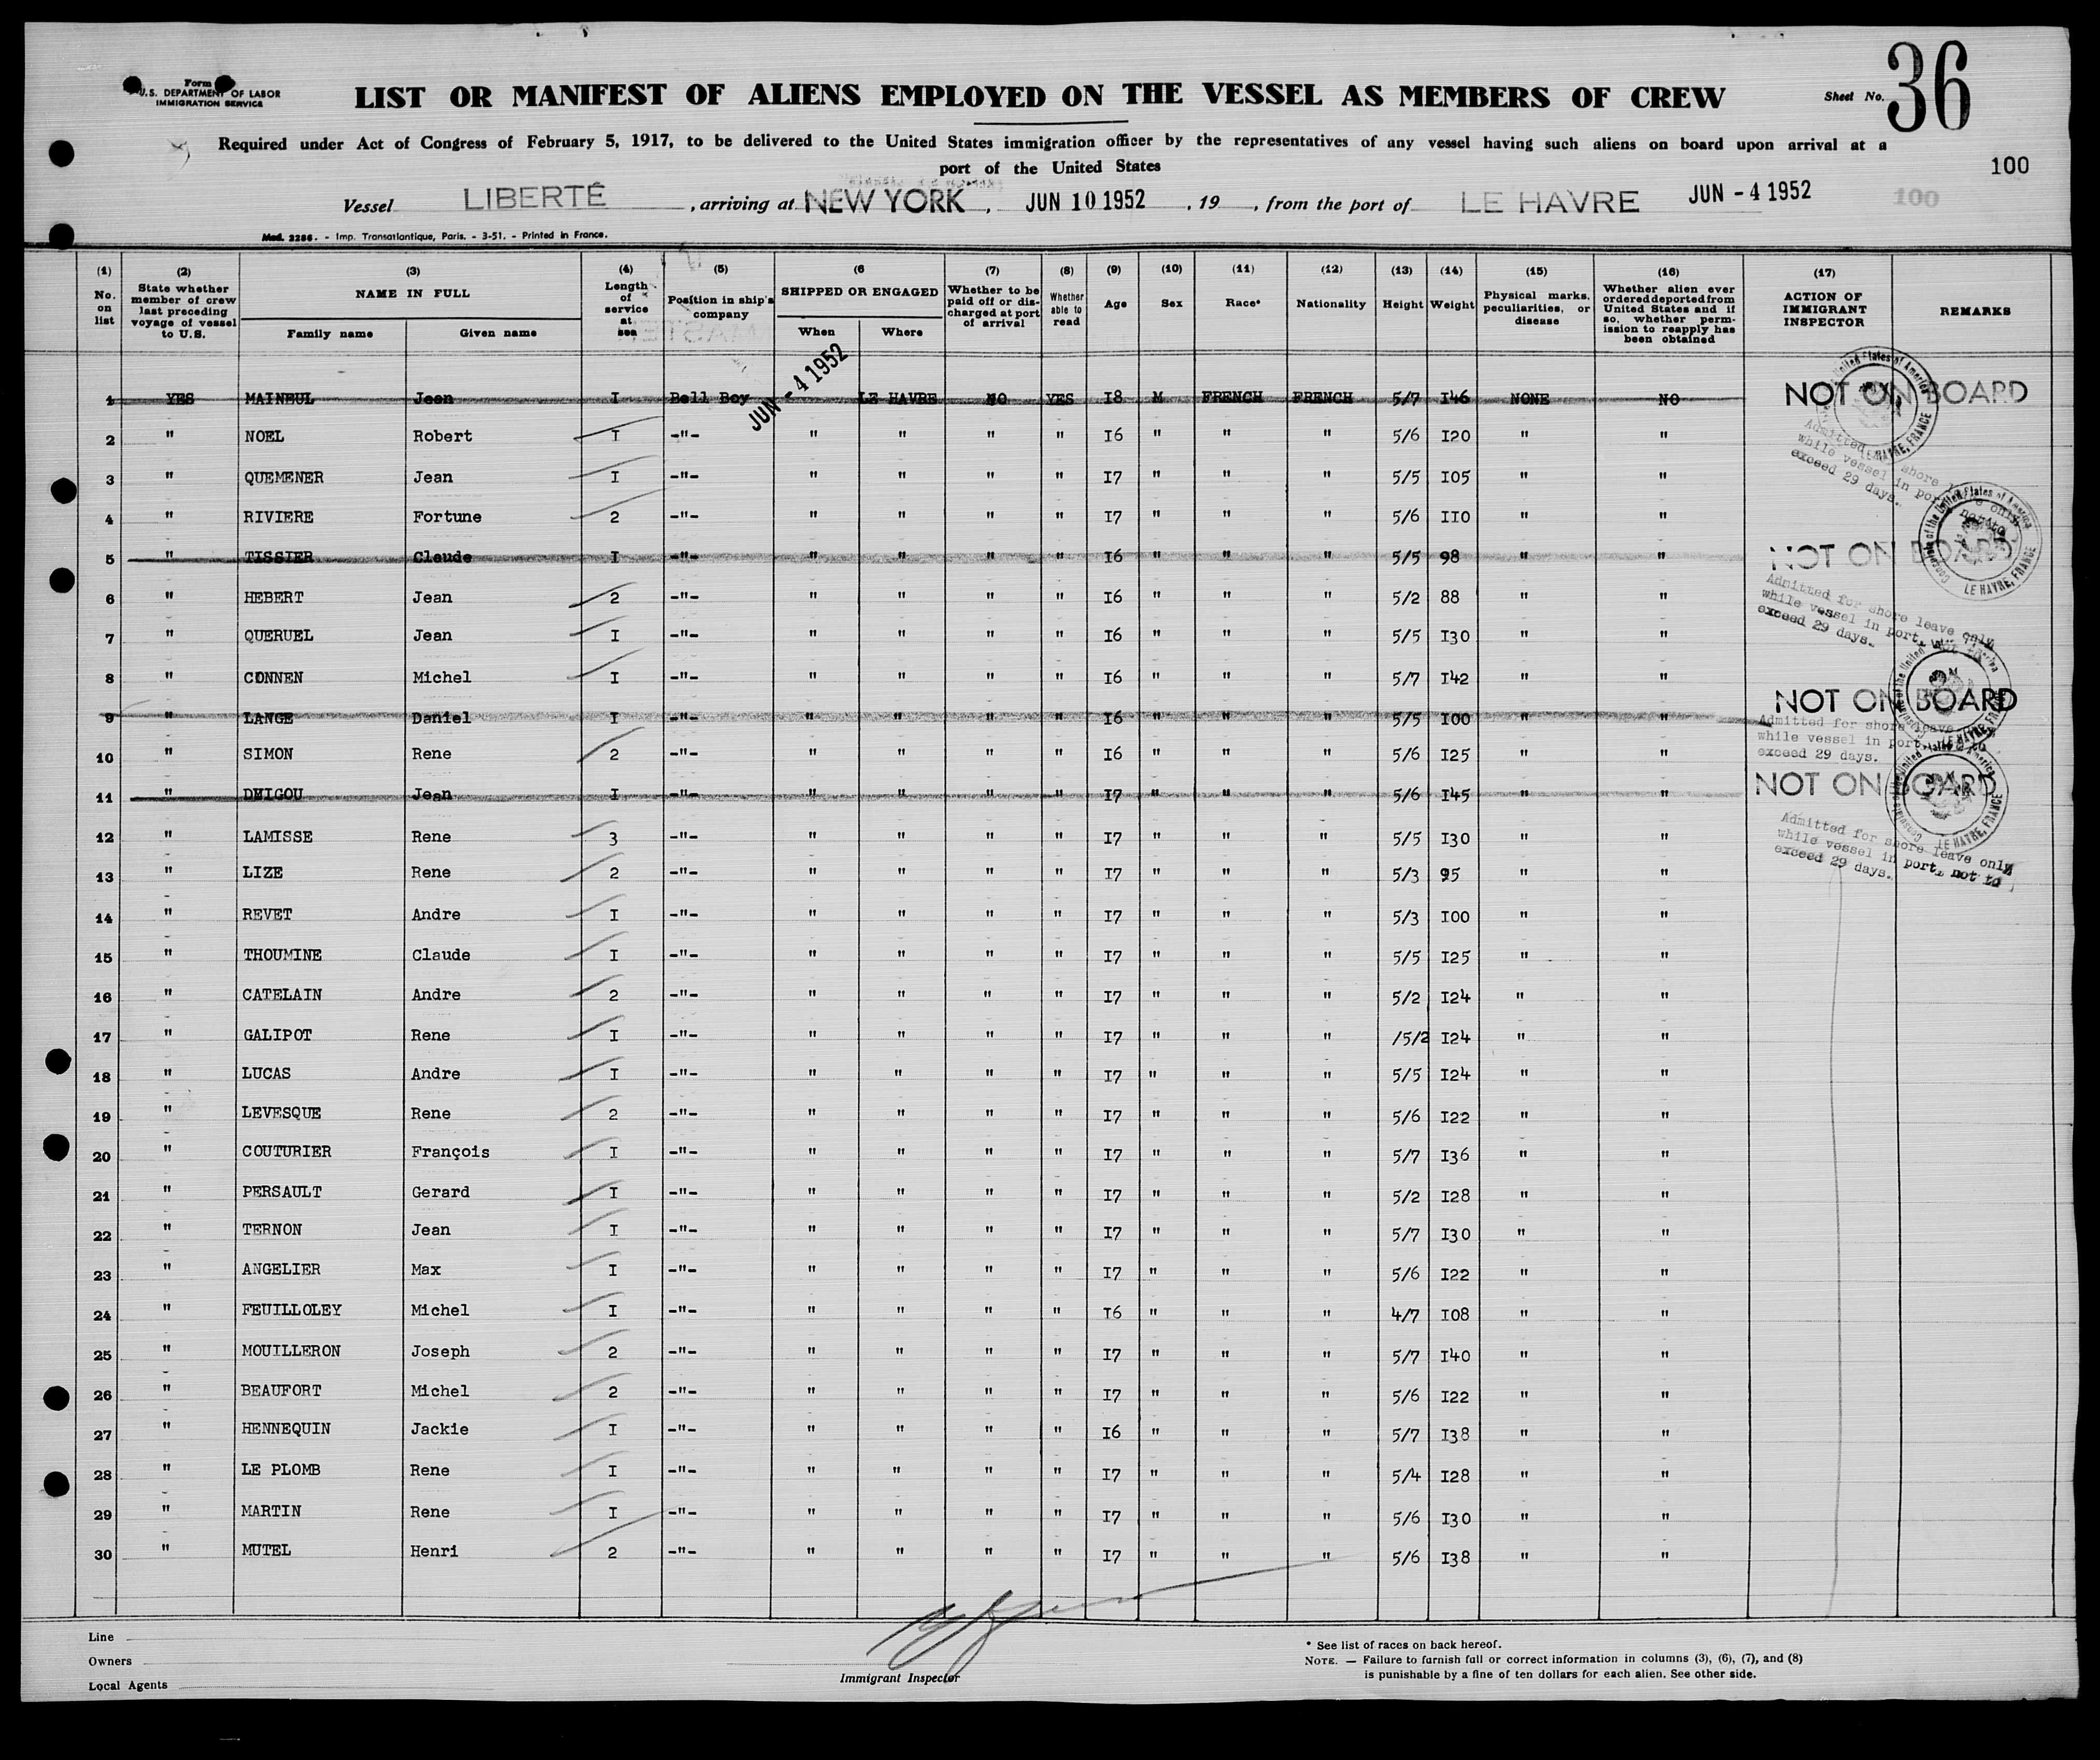 Form
U.S. DEPARTMENT OF LABOR
IMMIGRATION SERVICE
LIST OR MANIFEST OF ALIENS EMPLOYED ON THE VESSEL AS MEMBERS OF CREW
Sheet No. 36
Required under Act of Congress of February 5, 1917, to be delivered to the United States immigration officer by the representatives of any vessel having such aliens on board upon arrival at a
port of the United States
100
Vessel LIBERTÉ, arriving at NEW YORK, JUN 10 1952, 19 , from the port of LE HAVRE JUN - 4 1952 100
Mod. 2286. - Imp. Transatlantique, Paris. - 3-51. - Printed in France.
(1) No. on list
(2) State whether member of crew last preceding voyage of vessel to U.S.
(3) NAME IN FULL Family name Given name
(4) Length of service at sea
(5) Position in ship's company
(6 SHIPPED OR ENGAGED When Where
(7) Whether to be paid off or discharged at port of arrival
(8) Whether able to read
(9) Age
(10) Sex
(11) Race*
(12) Nationality
(13) Height
(14) Weight
(15) Physical marks, peculiarities, or disease
(16) Whether alien ever ordered deported from United States and if so, whether permission to reapply has been obtained
(17) ACTION OF IMMIGRANT INSPECTOR
REMARKS
JUN - 4 1952
1 YES MAINEUL Jean I Bell Boy LE HAVRE NO YES I8 M FRENCH FRENCH 5/7 I46 NONE NO NOT ON BOARD
2 " NOEL Robert I -"- " " " " I6 " " " 5/6 I20 " "
3 " QUEMENER Jean I -"- " " " " I7 " " " 5/5 I05 " "
4 " RIVIERE Fortune 2 -"- " " " " I7 " " " 5/6 II0 " "
5 " TISSIER Claude I -"- " " " " I6 " " " 5/5 98 " " NOT ON BOARD
6 " HEBERT Jean 2 -"- " " " " I6 " " " 5/2 88 " "
7 " QUERUEL Jean I -"- " " " " I6 " " " 5/5 I30 " "
8 " CONNEN Michel I -"- " " " " I6 " " " 5/7 I42 " "
9 " LANGE Daniel I -"- " " " " I6 " " " 5/5 I00 " " NOT ON BOARD
10 " SIMON Rene 2 -"- " " " " I6 " " " 5/6 I25 " "
11 " Jean I -"- " " " " I7 " " " 5/6 I45 " " NOT ON BOARD
12 " LAMISSE Rene 3 -"- " " " " I7 " " " 5/5 I30 " "
13 " LIZE Rene 2 -"- " " " " I7 " " " 5/3 95 " "
14 " REVET Andre I -"- " " " " I7 " " " 5/3 I00 " "
15 " THOUMINE Claude I -"- " " " " I7 " " " 5/5 I25 " "
16 " CATELAIN Andre 2 -"- " " " " I7 " " " 5/2 I24 " "
17 " GALIPOT Rene I -"- " " " " I7 " " " /5/2 I24 " "
18 " LUCAS Andre I -"- " " " " I7 " " " 5/5 I24 " "
19 " LEVESQUE Rene 2 -"- " " " " I7 " " " 5/6 I22 " "
20 " COUTURIER François I -"- " " " " I7 " " " 5/7 I36 " "
21 " PERSAULT Gerard I -"- " " " " I7 " " " 5/2 I28 " "
22 " TERNON Jean I -"- " " " " I7 " " " 5/7 I30 " "
23 " ANGELIER Max I -"- " " " " I7 " " " 5/6 I22 " "
24 " FEUILLOLEY Michel I -"- " " " " I6 " " " 4/7 I08 " "
25 " MOUILLERON Joseph 2 -"- " " " " I7 " " " 5/7 I40 " "
26 " BEAUFORT Michel 2 -"- " " " " I7 " " " 5/6 I22 " "
27 " HENNEQUIN Jackie I -"- " " " " I6 " " " 5/7 I38 " "
28 " LE PLOMB Rene I -"- " " " " I7 " " " 5/4 I28 " "
29 " MARTIN Rene I -"- " " " " I7 " " " 5/6 I30 " "
30 " MUTEL Henri 2 -"- " " " " I7 " " " 5/6 I38 " "
Admitted shore leave only
while vessel in port, not to
exceed 29 days.
LE HAVRE, FRANCE
Admitted for shore leave only
while vessel in port,
exceed 29 days.
LE HAVRE, FRANCE
Admitted for shore leave
while vessel in port,
exceed 29 days.
LE HAVRE, FRANCE
Admitted for shore leave only
while vessel in port, not to
exceed 29 days.
LE HAVRE, FRANCE
Line
Owners
Local Agents
Immigrant Inspector
* See list of races on back hereof.
NOTE. — Failure to furnish full or correct information in columns (3), (6), (7), and (8)
is punishable by a fine of ten dollars for each alien. See other side.